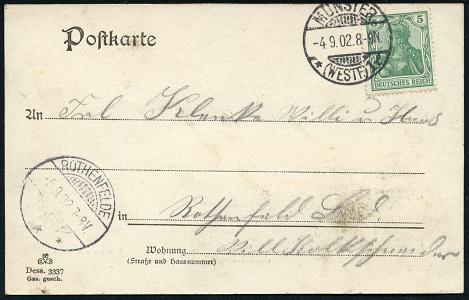 Postkarte
MÜNSTER
-4.9.02.8-9N
(WESTF.)
5
DEUTSCHES REICH
An Frl. Willi u Hans
ROTHENFELDE
-5.9.02.7-8V
in Rothenfeld
Wohnung
(Straße und Hausnummer)
Dess. 3337
Ges. gesch.